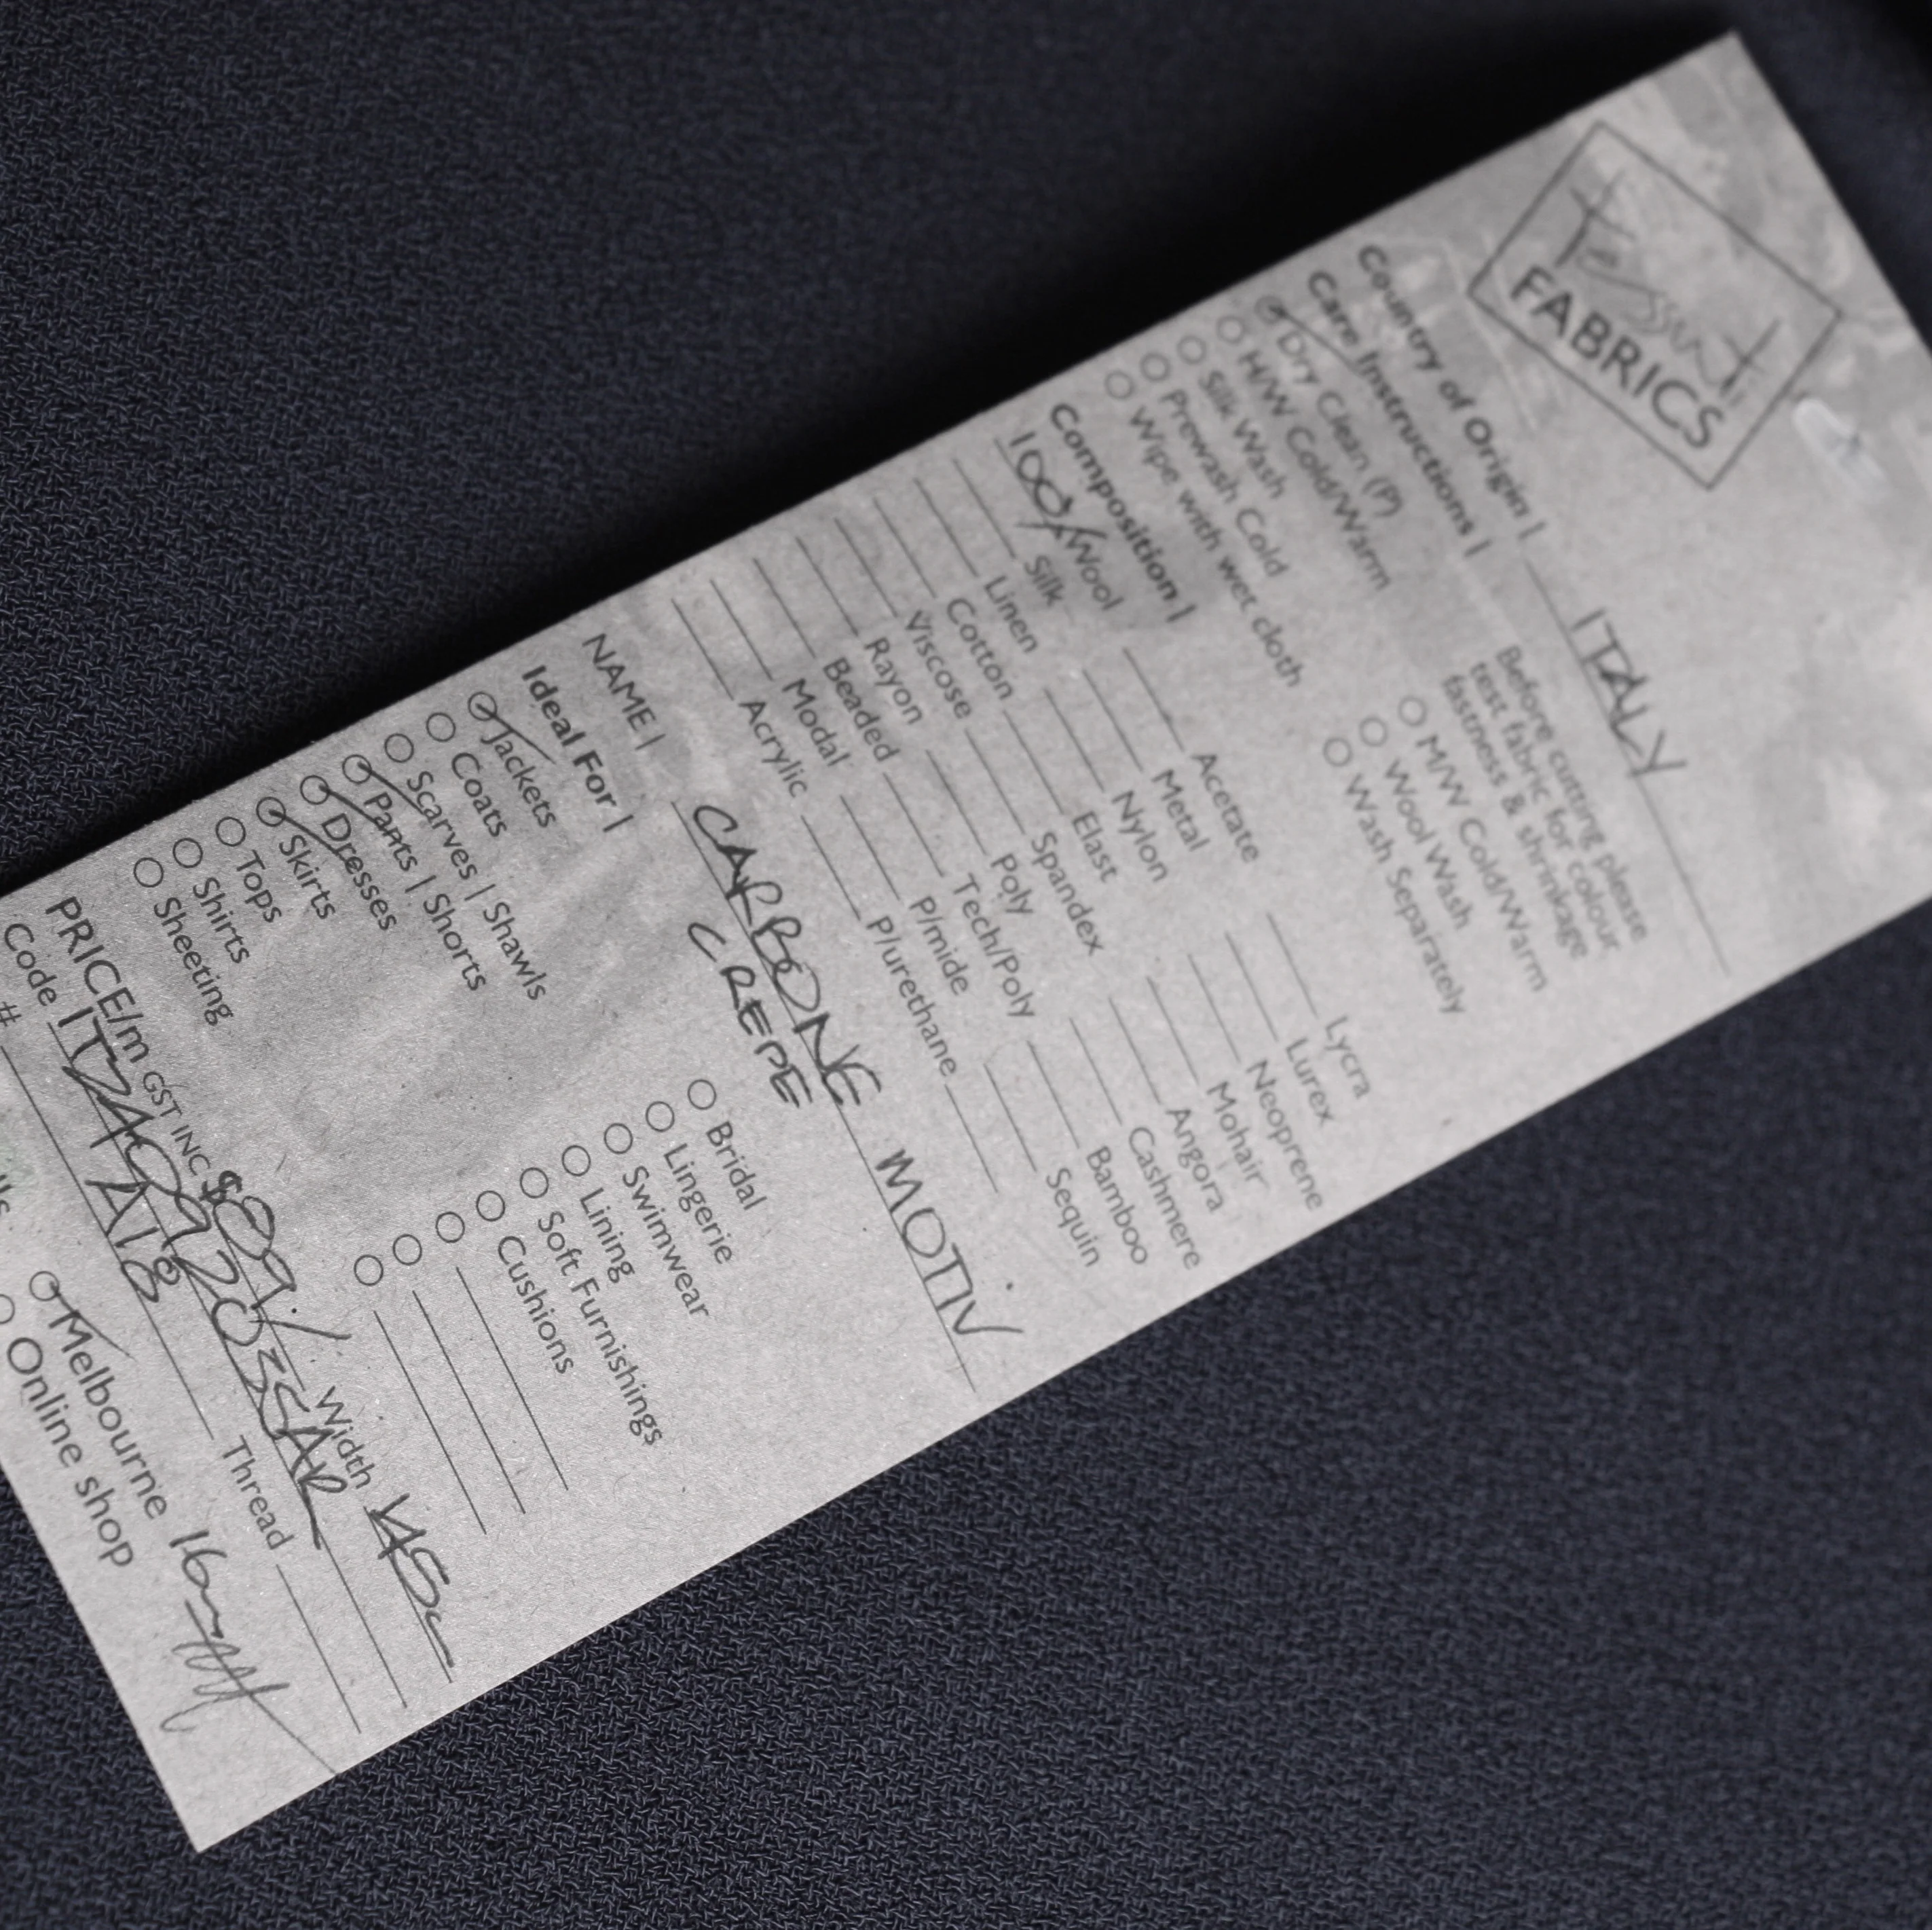 Tessuti
FABRICS
Country of Origin | ITALY
Care Instructions |
Before cutting please
test fabric for colour
fastness & shrinkage
Dry Clean (P)
H/W Cold/Warm
M/W Cold/Warm
Silk Wash
Wool Wash
Prewash Cold
Wash Separately
Wipe with wet cloth
Composition |
100% Wool Acetate Lycra
Silk Metal Lurex
Linen Nylon Neoprene
Cotton Elast Mohair
Viscose Spandex Angora
Rayon Poly Cashmere
Beaded Tech/Poly Bamboo
Modal P/mide Sequin
Acrylic P/urethane
NAME | CARBONE MOTIV
CREPE
Ideal For |
Jackets Bridal
Coats Lingerie
Scarves | Shawls Swimwear
Pants | Shorts Lining
Dresses Soft Furnishings
Skirts Cushions
Tops
Shirts
Sheeting
PRICE/m GST INC Width
Code
# A18 Thread
Melbourne
Online shop